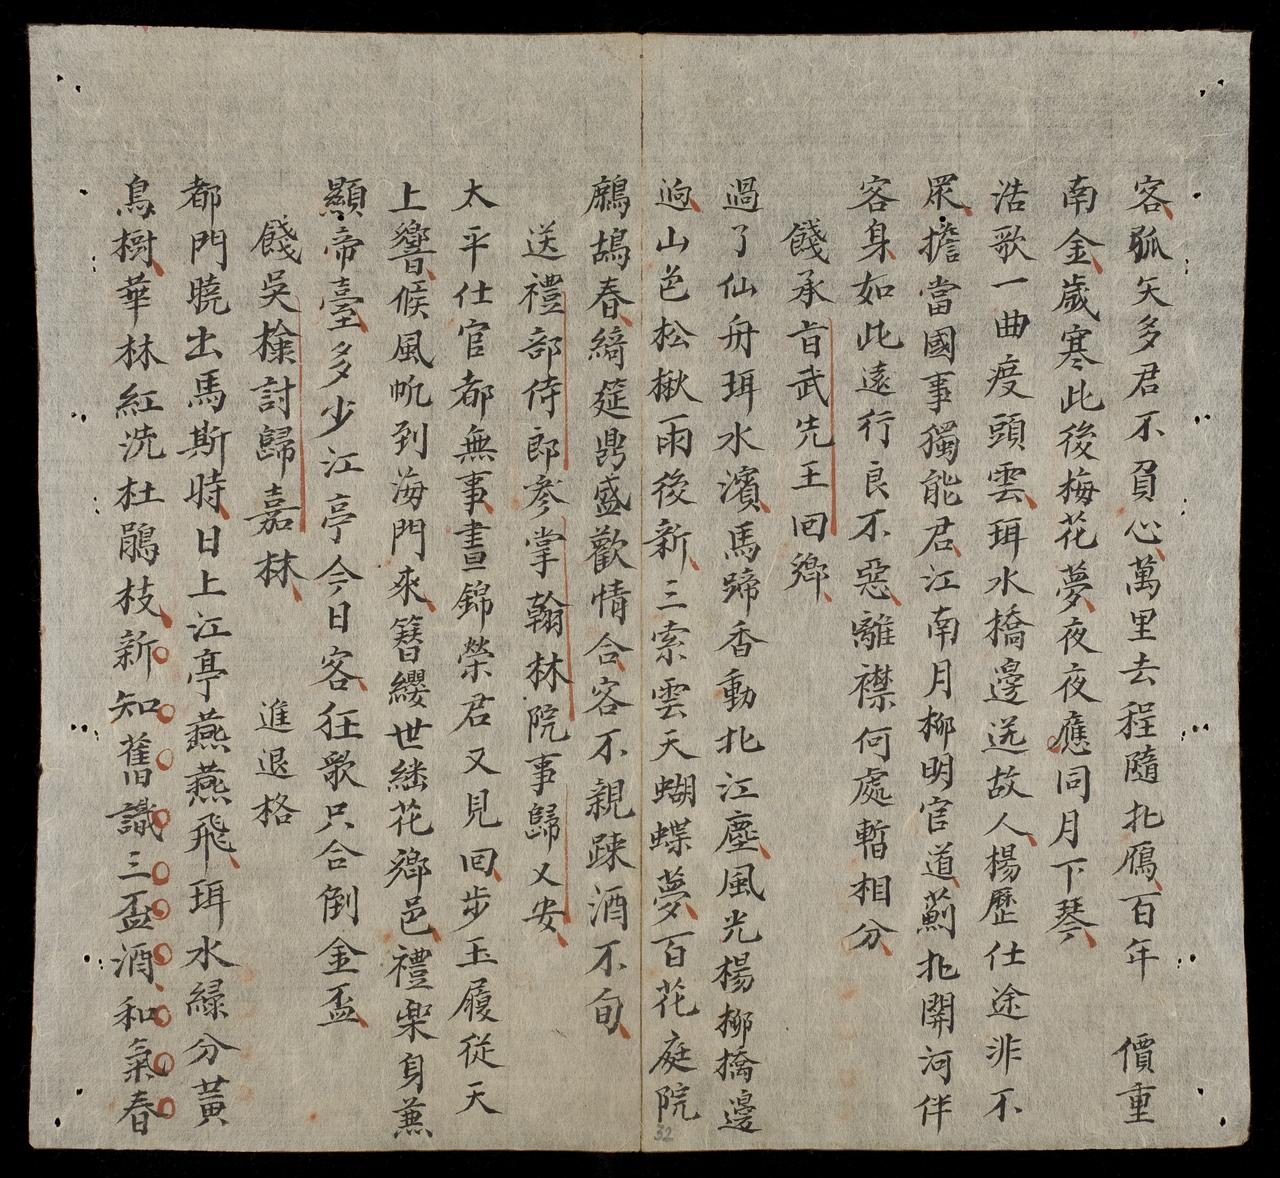 客孤矢多君不負心萬里去程隨北鴈百年　價重
南金歲寒此後梅花夢夜夜應同月下琴
浩歌一曲度頭雲珥水橋邊送故人楊歷仕途非不
眾擔當國事獨能君江南月柳明官道薊北開河伴
客身如此遠行良不惡離襟何處暫相分
餞承旨武先王回鄉
過了仙舟珥水濱馬蹄香動北江塵風光楊柳橋邊
逈山色松楸雨後新三索雲天蝴蝶夢百花庭院
鷓鴣春綺筵鼎盛歡情合客不親踈酒不旬
送禮部侍郎參掌翰林院事歸乂安
太平仕宦都無事晝錦榮君又見回步玉履從天
上響候風帆到海門來簪纓世継花鄉邑禮樂身兼
顯帝臺多少江亭今日客狂歌只合倒金盃
餞吳檢討歸嘉林　進退格
都門曉出馬斯時日上江亭燕燕飛珥水緑分黃
鳥樹華林紅洗杜鵑枝新知舊識三盃酒和氣春
32